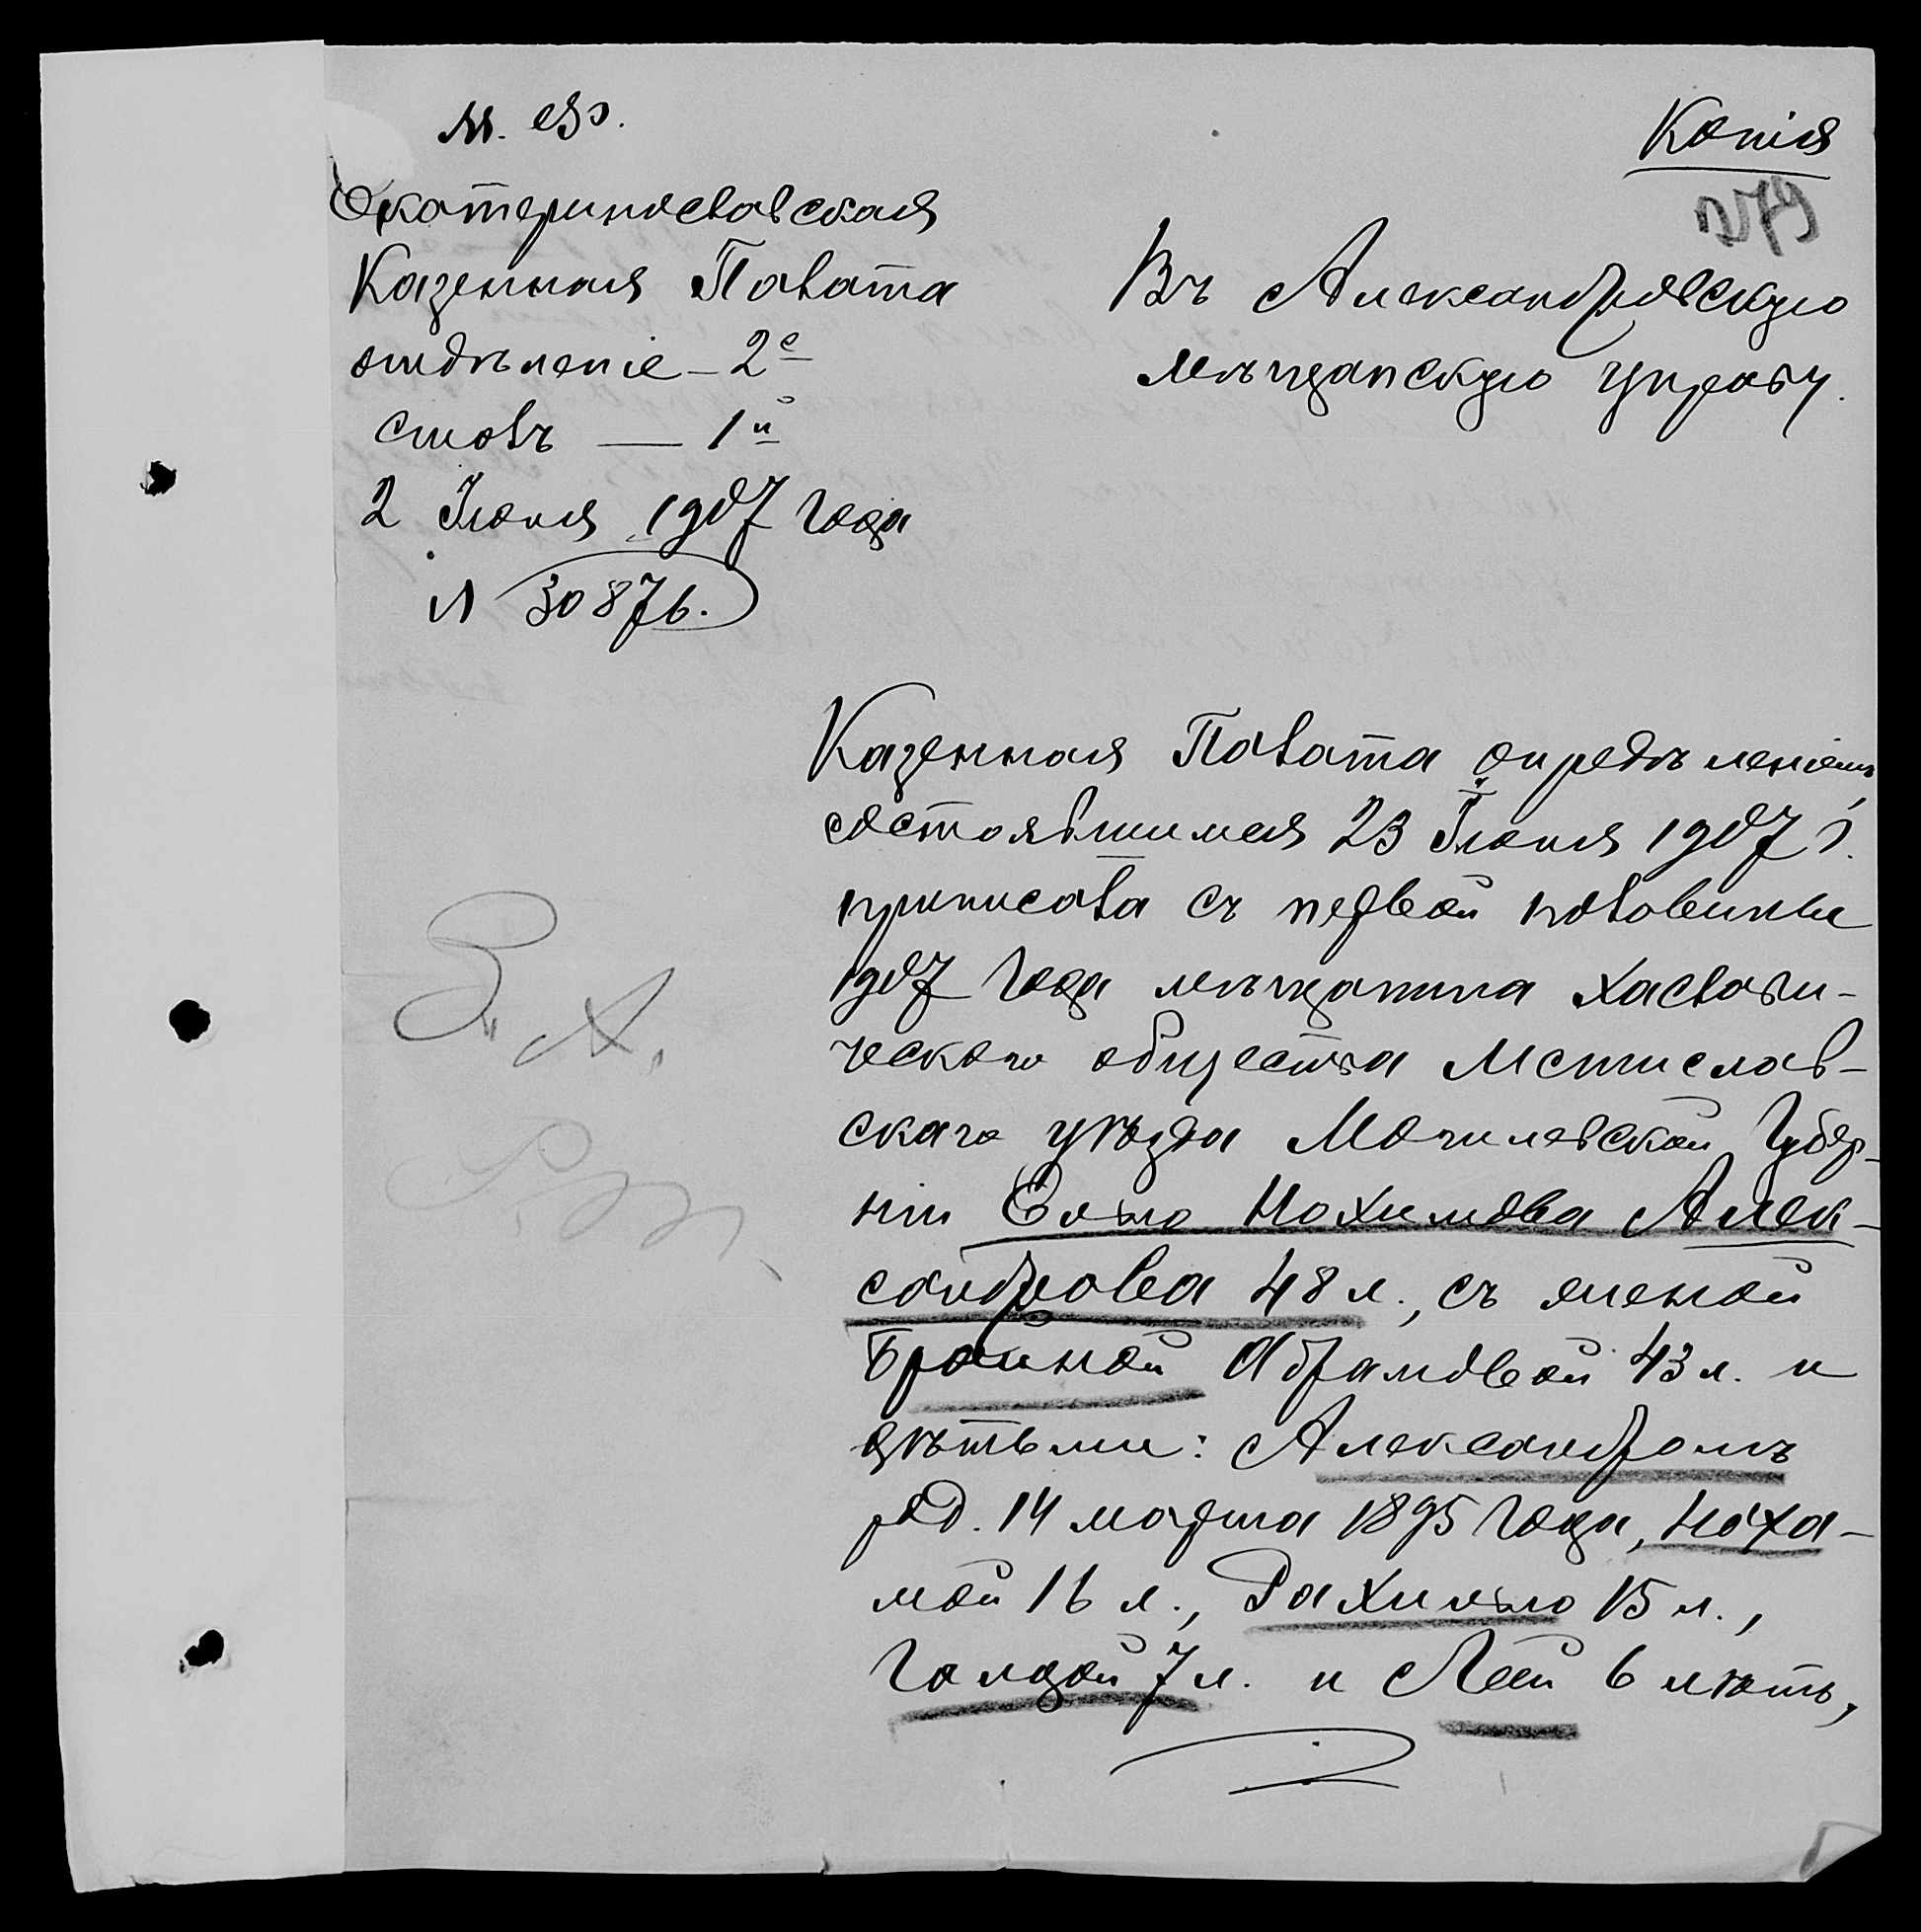 М. В. Д.
Копія
Екатеринославская
Казенная Палата
отдѣленіе – 2е
столъ — 1й
2 Іюня 1907 года
№ 30876.
Въ Александровскую
мѣщанскую управу.
Казенная Палата опредѣленіемъ,
состоявшимся 23 Іюня 1907 г.
приписала съ первой половины
1907 года мѣщанина Хаслави-
ческого общества Мстислав-
скаго уѣзда Могилевской Губер-
ніи Нохимова Алек-
сандрова 48 л., съ женой
Брайной Абрамовой 43 л. и
дѣтьми: Александромъ
род. 14 марта 1895 года, Неха-
мой 16 л., Рахилью 15 л.,
Голдой 7 л. и Леей 6 лѣтъ,